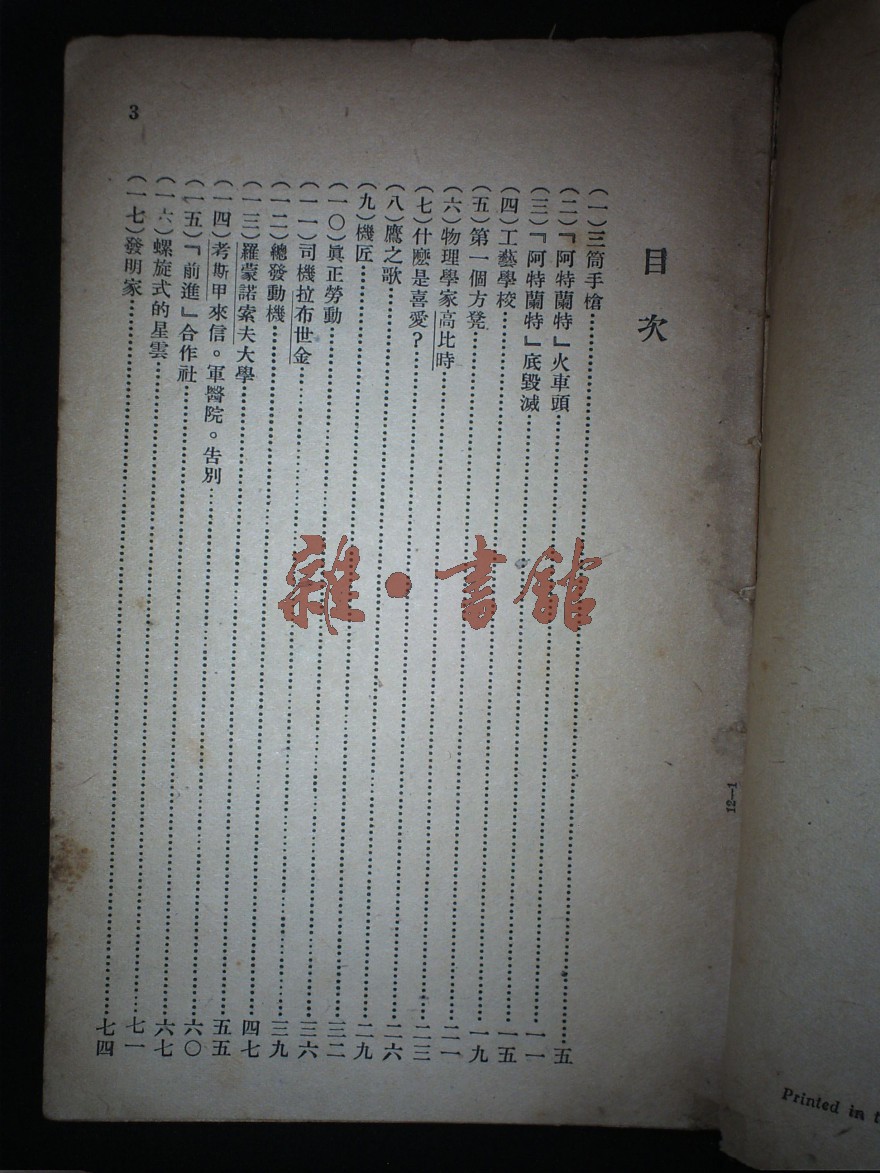 目次
(一)三筒手槍……五
(二)『阿特蘭特』火車頭……一一
(三)『阿特蘭特』底毀滅……一五
(四)工藝學校……一九
(五)第一個方凳……二一
(六)物理學家高比時……二三
(七)什麽是喜愛?……二六
(八)鷹之歌……二九
(九)機匠……三二
(一〇)眞正勞動……三六
(一一)司機拉布世金……三九
(一二)總發動機……四七
(一三)羅蒙諾索夫大學……五五
(一四)考斯甲來信。軍醫院。告別……六〇
(一五)『前進』合作社……六七
(一六)螺旋式的星雲……七一
(一七)發明家……七四
3
12—1
Printed in t
雜·書館